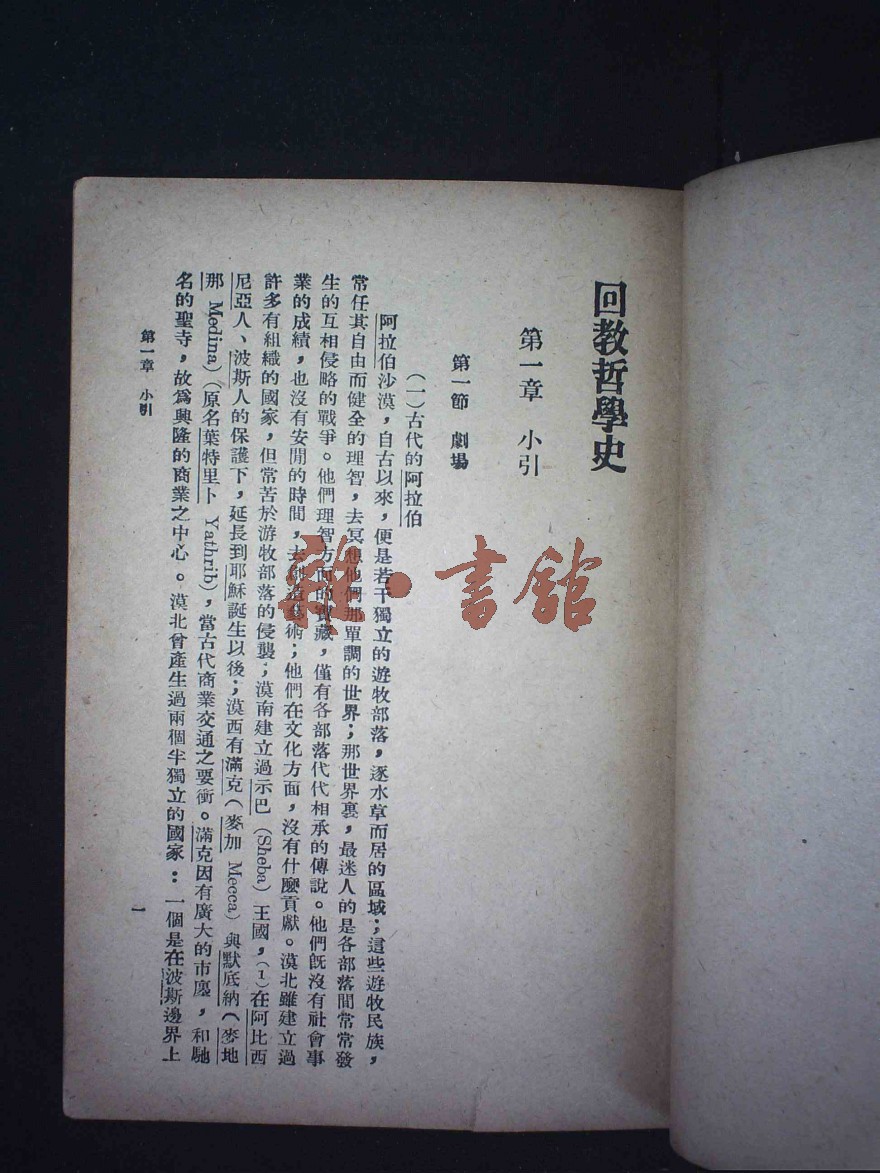 回教哲學史
第一章 小引
第一節 劇場
（一）古代的阿拉伯
阿拉伯沙漠，自古以來，便是若干獨立的遊牧部落，逐水草而居的區域；這些遊牧民族，
常任其自由而健全的理智，去冥想他們那單調的世界；那世界裏，最迷人的是各部落間常常發
生的互相侵略的戰爭。他們理智方面的寶藏，僅有各部落代代相承的傳說。他們旣沒有社會事
業的成績，也沒有安閒的時間，去創造藝術；他們在文化方面，沒有什麽貢獻。漠北雖建立過
許多有組織的國家，但常苦於游牧部落的侵襲；漠南建立過示巴（Sheba）王國，（1）在阿比西
尼亞人、波斯人的保護下，延長到耶穌誕生以後；漠西有滿克（麥加 Mecca）與默底納（麥地
那 Medina）（原名葉特里卜 Yathrib），當古代商業交通之要衝。滿克因有廣大的市廛，和馳
名的聖寺，故爲興隆的商業之中心。漠北曾產生過兩個半獨立的國家：一個是在波斯邊界上
第一章 小引
一
雜·書館